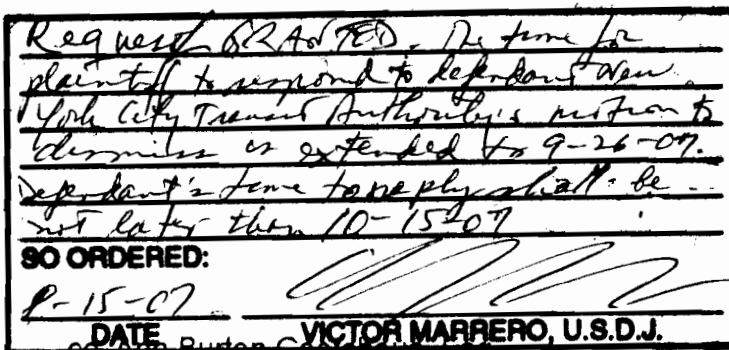 Request GRANTED. The time for
plaintiff to respond to defendant New
York City Transit Authority's motion to
dismiss is extended to 9-26-07.
Defendant's time to reply shall be
not later than 10-15-07
SO ORDERED:
8-15-07
DATE VICTOR MARRERO, U.S.D.J.
Burton